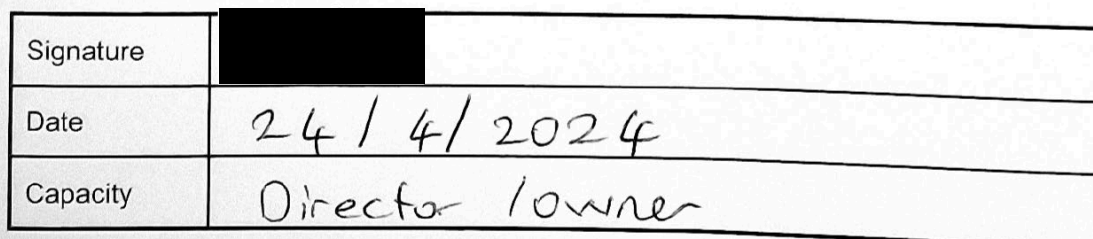 Signature
Date 24/4/2024
Capacity Director /owner